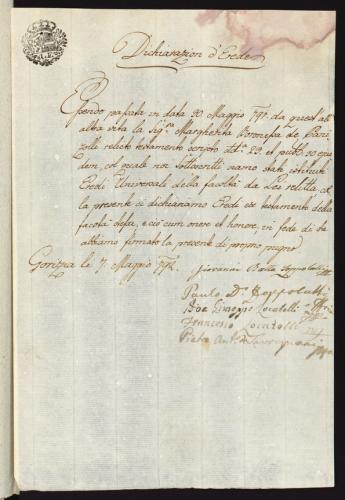 Dichiarazion d'Erede
Essendo passata in data 20 Maggio 1791 da questa all
altra vita la Sig.ra Margherita Baronessa de
relicto testamento scripto 29 et pub.to 30 ejus
dem, col quale noi Sottoscritti siamo stati istituiti
Eredi Universali della facoltà da Lei relitta, col
la presente ci dichiariamo Eredi ex testamento della
facoltà stessa, e ciò cum onere et honore, in fede di che
abbiamo firmato la presente di proprio pugno
Gorizia le 7 Maggio
Giovanni Batta Coppolatti
Paulo D. Coppolatti
Locatelli
Francesco Locatelli
Pietro Ant.